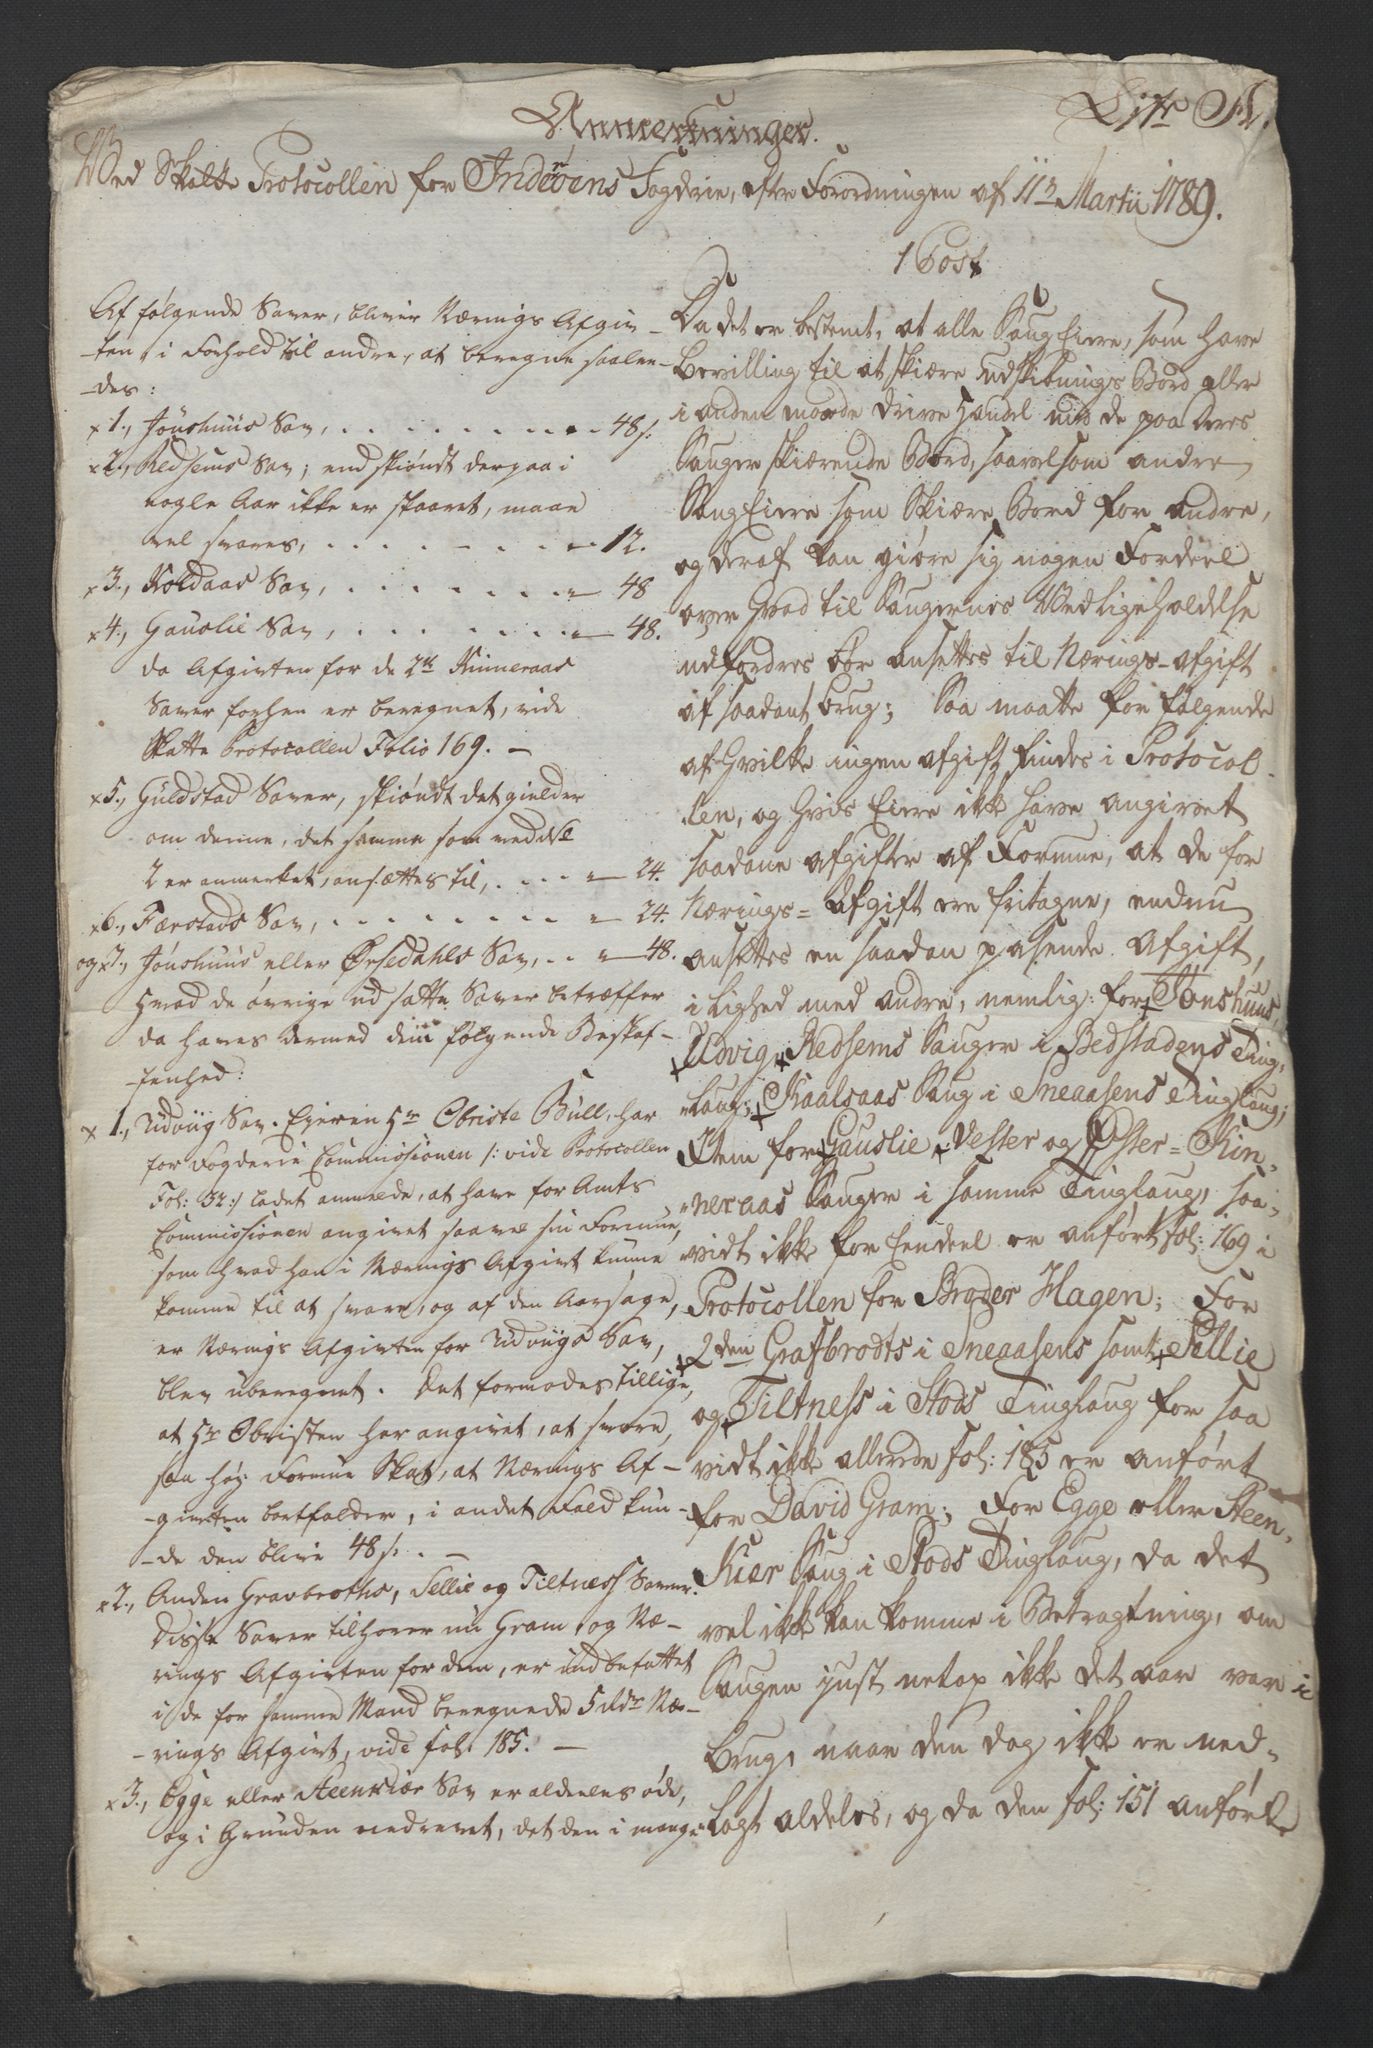 Litr A.
Anmerkninger.
Ved Skatte Protocollen for Inderøens Fogderie, efter Forordningen af 11te Martii 1789.
Af følgende Saver, bliver Nærings Afgiv-
-ten, i Forhold til andre, at beregne saalee-
-des:
x 1., Jönshuus Sav, . . . . . . . . . - 48 s:
x 2., Redsems Sav; endskiøndt derpaa i
nogle Aar ikke er skaaret, maae
vel svares, . . . . . . . . - 12.
x 3., Koldaas Sav, . . . . . . . - 48
x 4., Gauslie Sav, . . . . . . . - 48.
da Afgivten for de 2de Kinneraas
Saver forhen er beregnet, vide
Skatte Protocollen Folio 169. -
x 5., Guldstad Saver, skiøndt det gielder
om denne, det samme som ved No
2 er anmerket, ansættes til, . . . . - 24.
x 6., Farstads Sav, . . . . . . . . - 24.
og x 7., Jönshuus eller Ørsedahls Sav, . . - 48.
Hvad de øvrige udsatte Saver betræffer
da haves dermed den følgende Beskaf-
-fenhed:
x 1., Udviig Sav. Eieren Hr Obriste Bull, har
for Fogderie Commissionen /: vide Protocollen
Fol: 32:/ ladet anmelde, at have for Amts
Commissionen angivet saavel sin Formue,
som hvad han i Nærings Afgivt kunne
komme til at svare, og af den Aarsage,
er Nærings Afgivten for Udviigs Sav,
blev uberegnet. Det formodes tillige,
at Hr Obristen har angivet, at svare,
saa høj Formue Skat, at Nærings Af-
-givten bortfalder, i andet Fald kun-
-de den blive 48 s. -
x 2., Anden Gravbroths, Sellie og Tiltnæss Saver.
Disse Saver tilhører nu Gram, og Næ-
rings Afgivten for dem, er indbefattet
i de for samme Mand beregnede 5 rdr Næ-
-rings Afgivt, vide fol. 185. -
x 3., Egge eller Steenkiær Sav er aldeeles øde,
og i Grunden nedrevet, det den i mange
1 Post
Da det er bestemt, at alle Saug Eiere, som have
Bevilling til at skiære Udskibnings Bord eller
i anden maade drive Handel med de paa deres
Sauger skiærende Bord, saavelsom andre
Saug Eiere som skiære Bord for andre,
og deraf kan giøre sig nogen Fordeel
over hvad til Saugernes Vedligeholdelse
udfordres bør ansettes til Nærings-afgift
af saadant brug; Saa maatte for følgende
af hvilke ingen afgift findes i Protocol-
len, og hvis Eiere ikke have angivet
saadane afgifter af Formue, at de for
Nærings = Afgift ere fritagne, endnu
ansettes en saadan passende afgift,
i Lighed med andre, nemlig: for Tønshuus,
Udvig, Redsems Sauger i Bedstadens Ting-
laug; Kaalsaas Saug i Sneaasens Tinglaug;
Item for Gauslie, Vester og Øster = Kin-
neraas Sauger i samme Tinglaug, saa-
vidt ikke for Eendeel er anført fol: 169 i
Protocollen for Broder Hagen; For
2den Grafbrodts i Sneaasens samt Sellie
og Tiltness i Stods Tinglaug for saa
vidt ikke allerede fol: 185 er anført
for David Gram; For Egge eller Steen-
Kiær Saug i Stods Tinglaug, da det
vel ikke kan komme i Betragtning, om
Saugen just netop ikke det aar var i
brug, naar den dog ikke er ned-
Lagt aldeles, og da den fol: 151 anførte